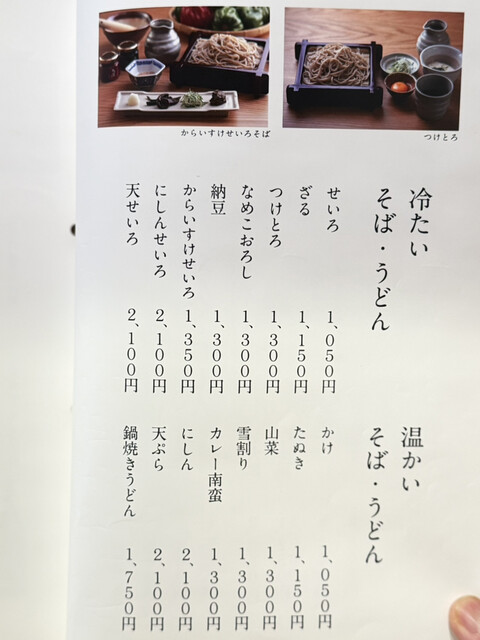 からいすけせいろそば
つけとろ
冷たい
そば・うどん
せいろ 1、050円
ざる 1、150円
つけとろ 1、300円
なめこおろし 1、300円
納豆 1、300円
からいすけせいろ 1、350円
にしんせいろ 2、100円
天せいろ 2、100円
温かい
そば・うどん
かけ 1、050円
たぬき 1、150円
山菜 1、300円
雪割り 1、300円
カレー南蛮 1、300円
にしん 2、100円
天ぷら 2、100円
鍋焼きうどん 1、750円